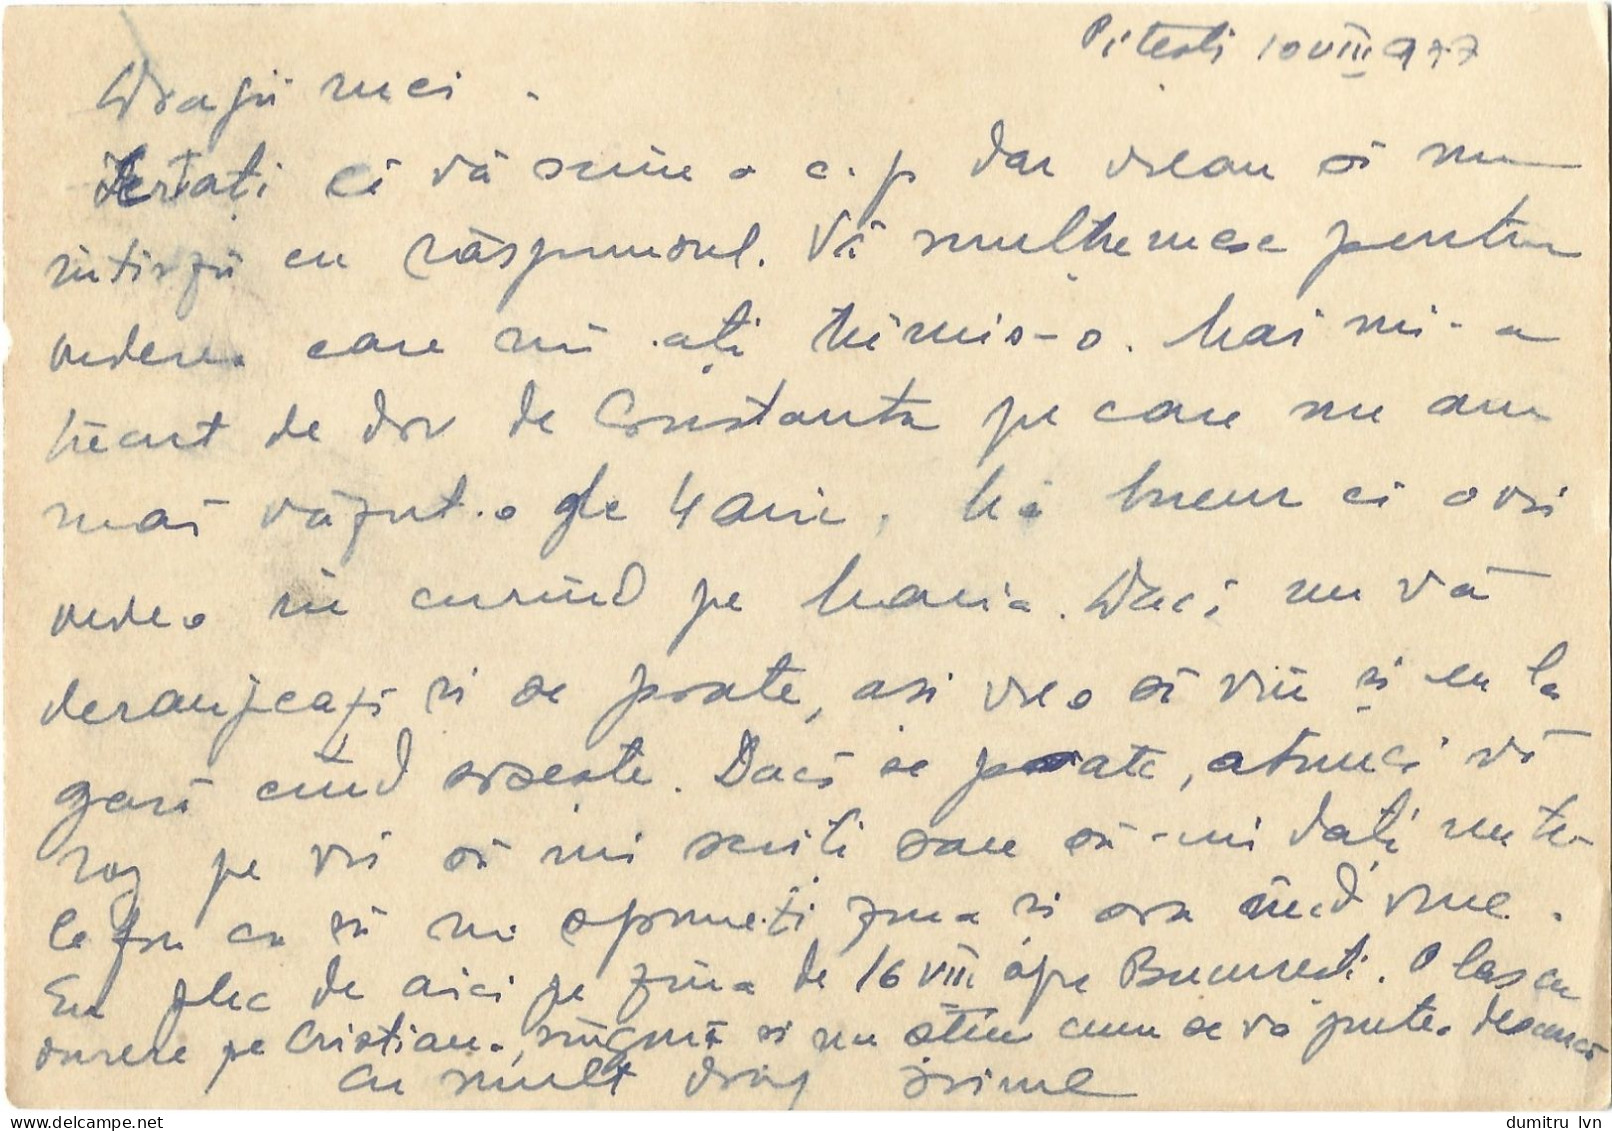 Pitesti 10 VIII 977
Dragii mei.
Iertați că vă scriu o c.p dar vreau să nu
întîrzii cu răspunsul. Vă mulțumesc pentru
vederea care mi ați trimis-o. Mai mi-a
trecut de dor de Constanta pe care nu am
mai văzut-o de 4 ani. Mă bucur că o voi
vedea în curînd pe Maria. Dacă nu vă
deranjează și se poate, asi vrea să viu și eu la
gară cînd soseste. Dacă se poate, atunci vă
rog pe voi să mi scriti sau să-mi dați un te-
lefon ca să mi spuneți ziua si ora cînd vine.
Eu plec de aici pe ziua de 16 VIII spre Bucuresti. O las cu
durere pe Cristiana, singură si nu stiu cum se va putea descurca
Cu mult drag
dumitru_lvn